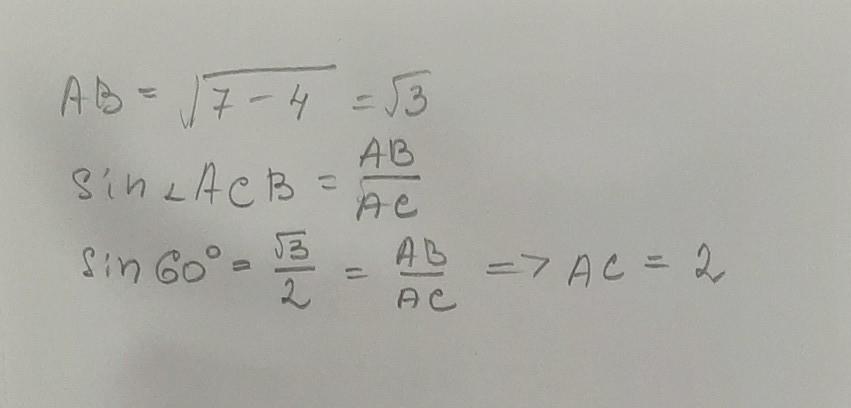 AB = √7 - 4 = √3
sin ∠ACB = AB/AC
sin 60° = √3/2 = AB/AC => AC = 2